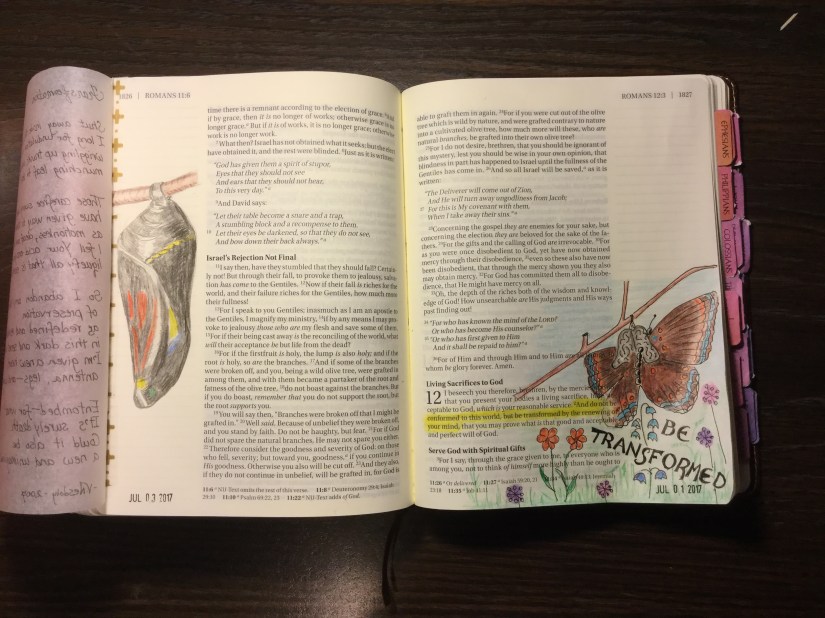 1026 | ROMANS 11:6
time there is a remnant according to the election of grace. And
if by grace, then it is no longer of works; otherwise grace is no
longer grace. But if it is of works, it is no longer grace; otherwise
work is no longer work.
7 What then? Israel has not obtained what it seeks; but the elect
have obtained it, and the rest were blinded. 8 Just as it is written:
"God has given them a spirit of stupor,
Eyes that they should not see
And ears that they should not hear,
To this very day."
9 And David says:
"Let their table become a snare and a trap,
A stumbling block and a recompense to them.
10 Let their eyes be darkened, so that they do not see,
And bow down their back always."
Israel's Rejection Not Final
11 I say then, have they stumbled that they should fall? Certain-
ly not! But through their fall, to provoke them to jealousy, salva-
tion has come to the Gentiles. 12 Now if their fall is riches for the
world, and their failure riches for the Gentiles, how much more
their fullness!
13 For I speak to you Gentiles; inasmuch as I am an apostle to
the Gentiles, I magnify my ministry, 14 if by any means I may pro-
voke to jealousy those who are my flesh and save some of them.
15 For if their being cast away is the reconciling of the world, what
will their acceptance be but life from the dead?
16 For if the firstfruit is holy, the lump is also holy; and if the
root is holy, so are the branches. 17 And if some of the branches
were broken off, and you, being a wild olive tree, were grafted in
among them, and with them became a partaker of the root and
fatness of the olive tree, 18 do not boast against the branches. But
if you do boast, remember that you do not support the root, but
the root supports you.
19 You will say then, "Branches were broken off that I might be
grafted in." 20 Well said. Because of unbelief they were broken off,
and you stand by faith. Do not be haughty, but fear. 21 For if God
did not spare the natural branches, He may not spare you either.
22 Therefore consider the goodness and severity of God: on those
who fell, severity; but toward you, goodness, if you continue in
His goodness. Otherwise you also will be cut off. 23 And they also,
if they do not continue in unbelief, will be grafted in, for God is
JUL 03 2017
ROMANS 12:3 | 1027
able to graft them in again. 24 For if you were cut out of the olive
tree which is wild by nature, and were grafted contrary to nature
into a cultivated olive tree, how much more will these, who are
natural branches, be grafted into their own olive tree?
25 For I do not desire, brethren, that you should be ignorant of
this mystery, lest you should be wise in your own opinion, that
blindness in part has happened to Israel until the fullness of the
Gentiles has come in. 26 And so all Israel will be saved, as it is
written:
"The Deliverer will come out of Zion,
And He will turn away ungodliness from Jacob;
27 For this is My covenant with them,
When I take away their sins."
28 Concerning the gospel they are enemies for your sake, but
concerning the election they are beloved for the sake of the fa-
thers. 29 For the gifts and the calling of God are irrevocable. 30 For
as you were once disobedient to God, yet have now obtained
mercy through their disobedience, 31 even so these also have now
been disobedient, that through the mercy shown you they also
may obtain mercy. 32 For God has committed them all to disobe-
dience, that He might have mercy on all.
33 Oh, the depth of the riches both of the wisdom and knowl-
edge of God! How unsearchable are His judgments and His ways
past finding out!
34 "For who has known the mind of the LORD?
Or who has become His counselor?"
35 "Or who has first given to Him
And it shall be repaid to him?"
36 For of Him and through Him and to Him are
whom be glory forever. Amen.
Living Sacrifices to God
12 I beseech you therefore, brethren, by the mercies
that you present your bodies a living sacrifice,
ceptable to God, which is your reasonable service. 2 And do not be
conformed to this world, but be transformed by the renewing of
your mind, that you may prove what is that good and acceptable
and perfect will of God.
Serve God with Spiritual Gifts
3 For I say, through the grace given to me, to everyone who is
among you, not to think of himself more highly than he ought to
BE
TRANSFORMED
JUL 01 2017
EPHESIANS
PHILIPPIANS
COLOSSIANS